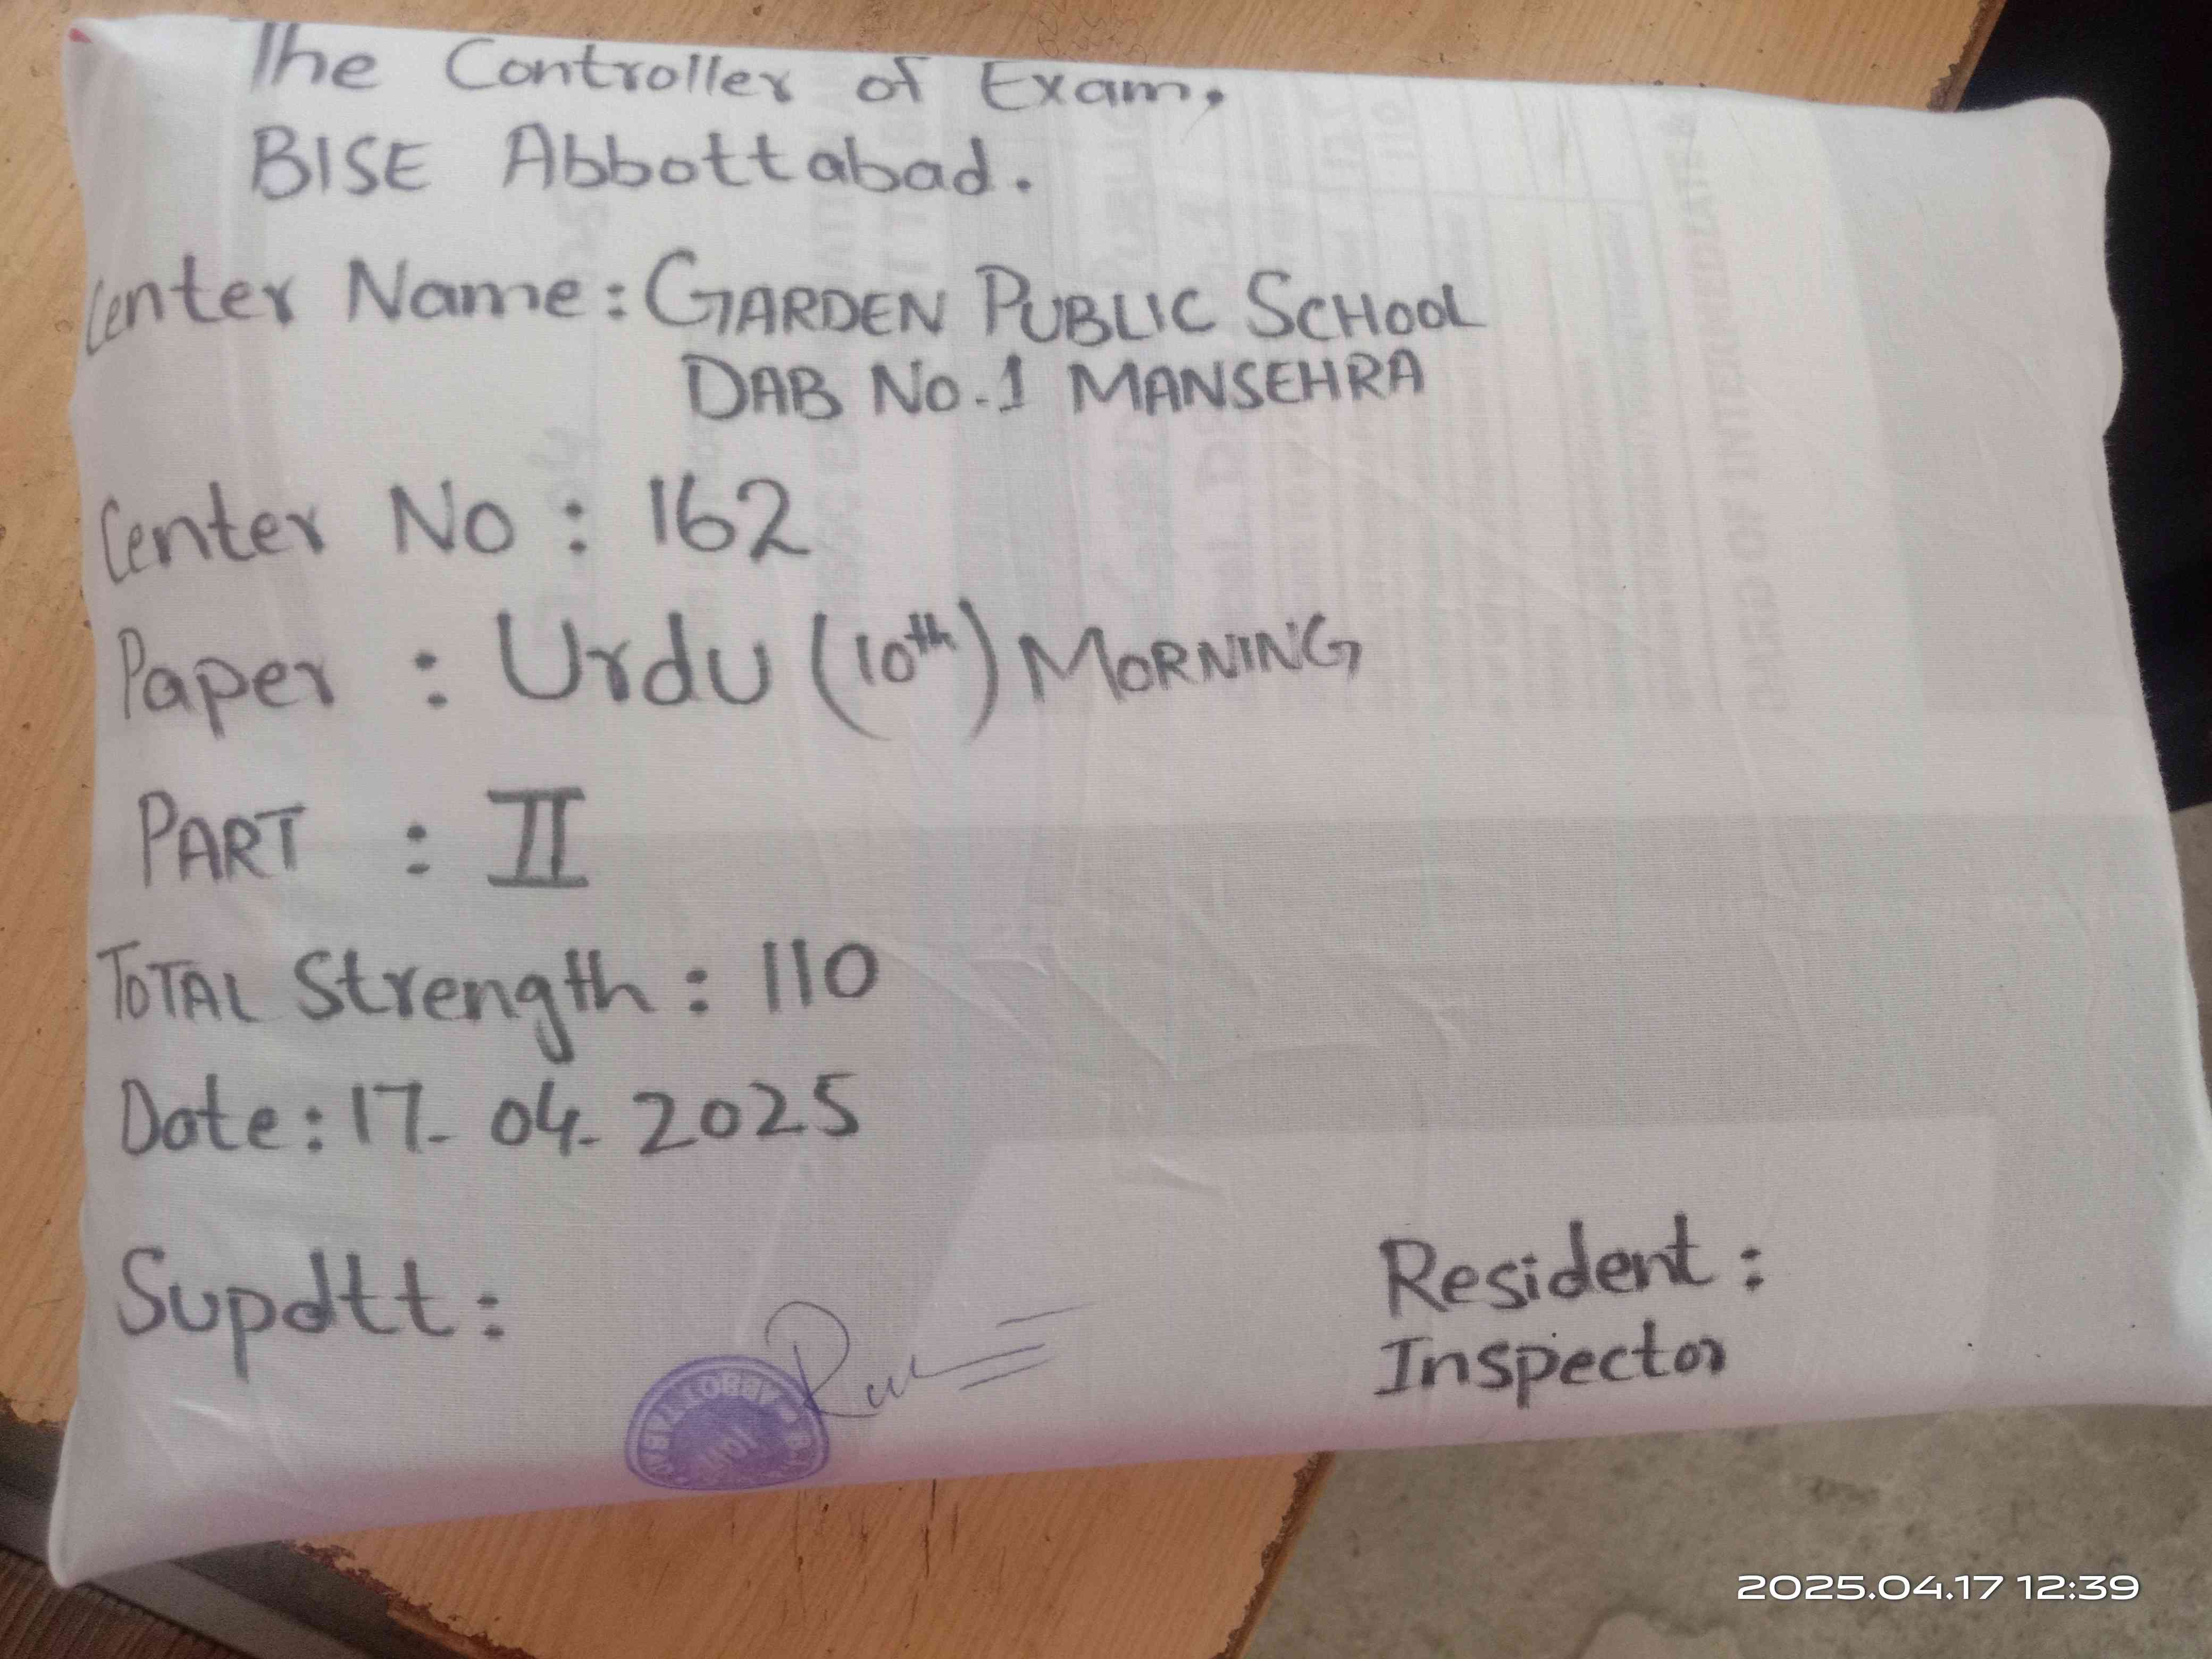 The Controller of Exam,
BISE Abbottabad.
Center Name: GARDEN PUBLIC SCHOOL
DAB No.1 MANSEHRA
Center No : 162
Paper : Urdu (10th) MORNING
PART : II
TOTAL Strength : 110
Date: 17-04-2025
Supdtt:
Resident :
Inspector
2025.04.17 12:39